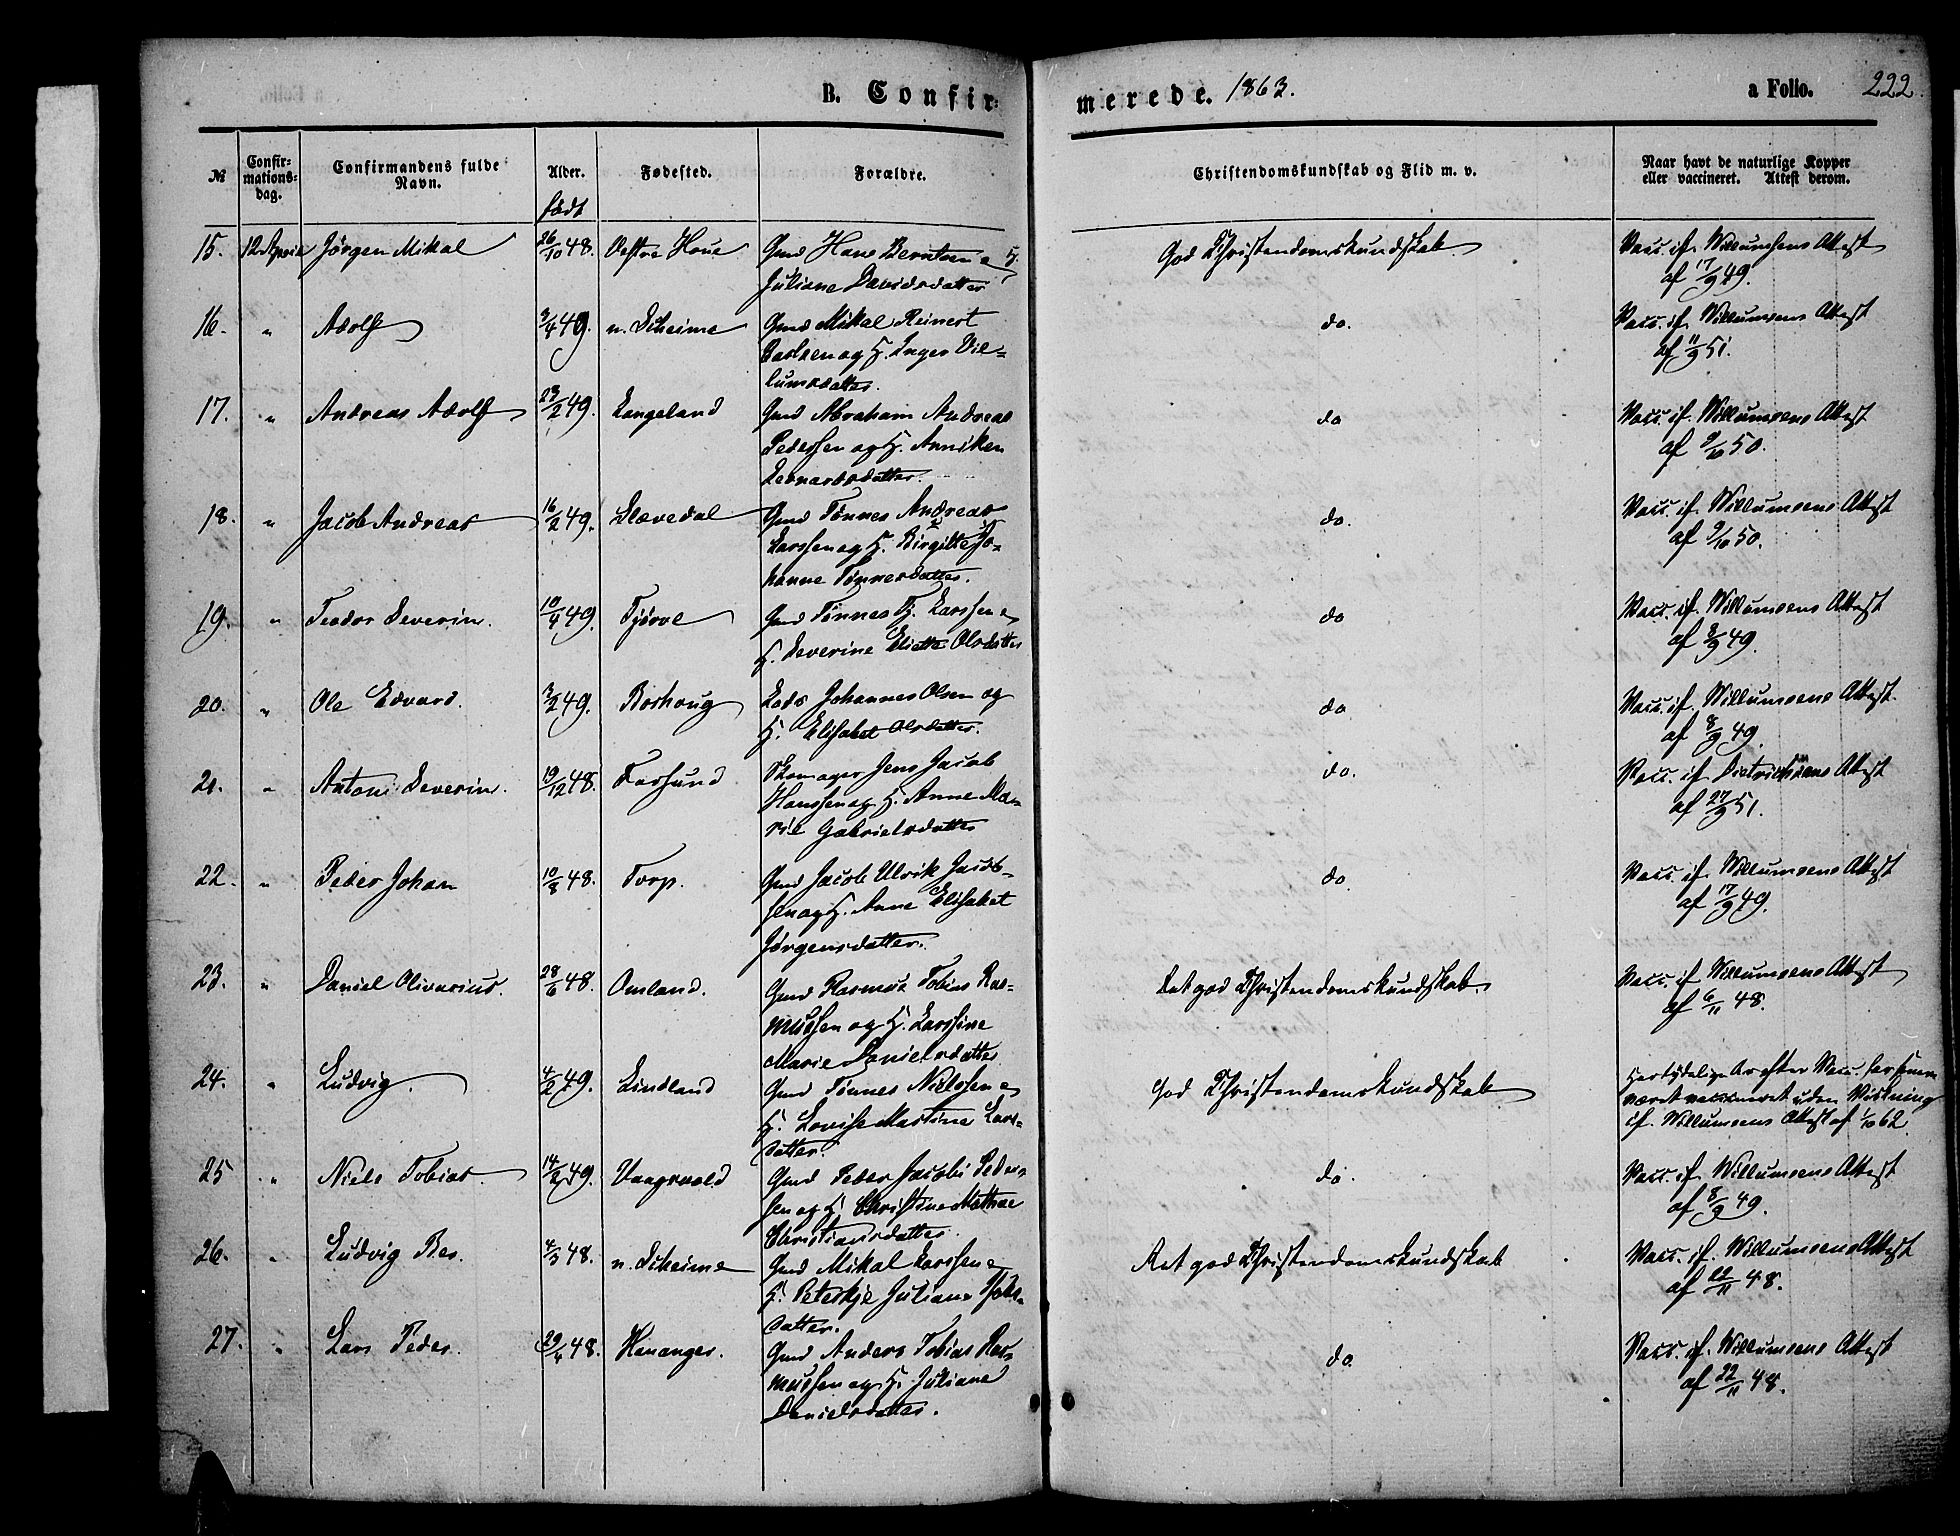 B. Confir-
merede. 1863.
a Folio. 222.
№
Confir-
mations-
dag.
Confirmandens fulde
Navn.
Alder.
født
Fødested.
Forældre.
Christendomskundskab og Flid m. v.
Naar havt de naturlige Kopper
eller vaccineret. Attest derom.
15. 12 April Jörgen Mikal 26/10 48. Vestre Houe Gmd Hans Berntsen e
Juliane Davidsdatter
God Christendomskundskab.
Vacc. if. Willumsens Attest
af 17/9 49.
16. " Adolf 3/4 49. n. Diheime Gmd Mikal Reinert
og H. Inger Vil-
lumsdatter.
do.
Vacc. if. Willumsens Attest
af 11/9 51.
17. " Andreas Adolf 23/2 49. Langeland Gmd Abraham Andreas
Pedersen og H. Anniken
Leonardsdatter.
do
Vacc. if. Willumsens Attest
af 9/10 50.
18. " Jacob Andreas 16/2 49. Slævedal Gmd Tønnes Andreas
Larssen og H. Birgitte Jo-
hanne Tønnesdatter.
do.
Vacc. if. Willumsens Attest
af 9/10 50.
19. " Teodor Severin. 10/4 49. Tjörve Gmd Tønnes Tj. Larssen e
H. Severine Eliette Olsdatter
do
Vacc. if. Willumsens Attest
af 8/9 49.
20. " Ole Edvard. 3/2 49. Borhoug Lods Johannes Olsen og
H. Elisabet Olsdatter.
do
Vacc. if. Willumsens Attest
af 8/9 49
21. " Antoni Severin. 19/12 48. Farsund Skomager Jens Jacob
Hanssen og H. Anne Ma-
rie Gabrielsdatter
do.
Vacc. if. Dietrichsons Attest
af 27/9 51.
22. " Peder Johan 10/8 48. Torp. Gmd Jacob Ulrik Jacob-
sen og H. Anne Elisabet
Jörgensdatter.
do
Vacc. if. Willumsens Attest
af 17/9 49.
23. " Daniel Olivarius. 28/6 48. Omland. Gmd Rasmus Tobias Ras-
mussen og H. Larssine
Marie Danielsdatter
Ret god Christendomskundskab.
Vacc. if. Willumsens Attest
af 6/11 48.
24. " Ludvig. 4/2 49. Lindland Gmd Tønnes Nielssen e
H. Lovise Martine Lars-
datter.
God Christendomskundskab
Har tydelige Ar efter Vacc.
været vaccineret uden Virkning
if. Willumsens Attest af 1/10 62.
25 " Niels Tobias. 14/2 49. Vaagsvold Gmd Peder Jacobi Peder-
sen og H. Christine Mathea
Christiansdatter.
do.
Vacc. if. Willumsens Attest
af 8/9 49.
26. " Ludvig Ber. 4/3 48. n. Diheime Gmd Mikal Larssen e
H. Peterkje Juliane
datter.
Ret god Christendomskundskab
Vacc. if. Willumsens Attest
af 22/11 48.
27. " Lars Peder. 29/4 48. Hananger. Gmd Anders Tobias Ras-
mussen og H. Juliane
Danielsdatter.
do
Vacc. if. Willumsens Attest
af 22/11 48.